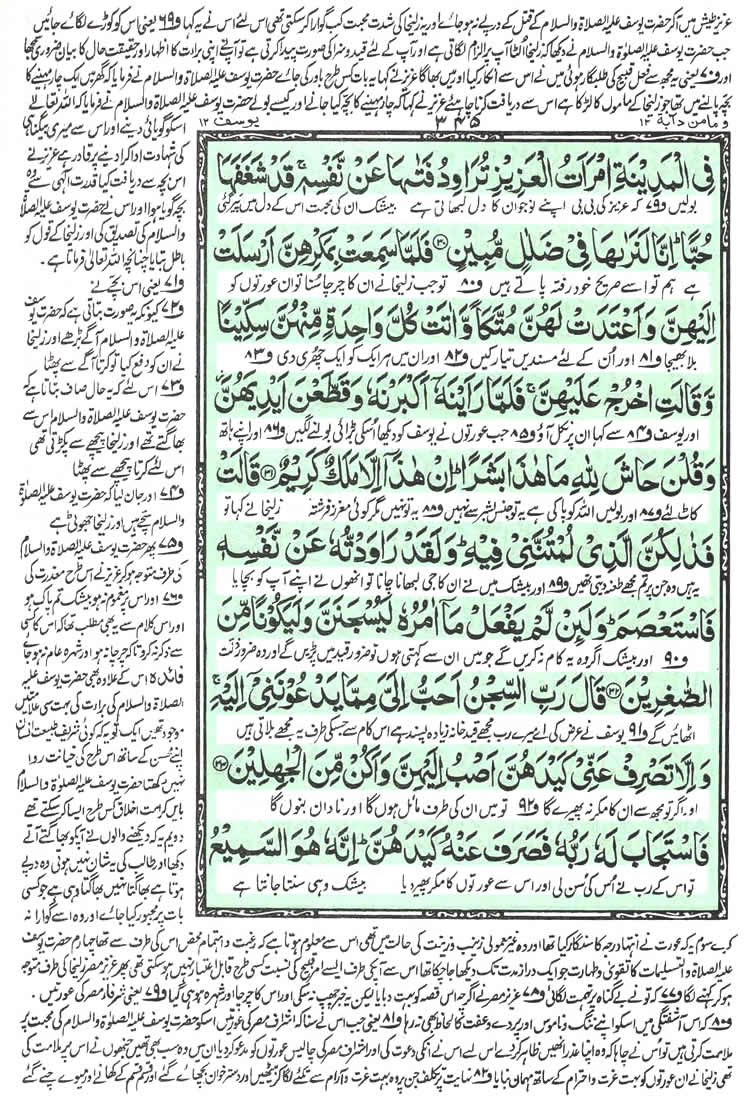 عزیز طیش میں آکر حضرت یوسف علیہ الصلاۃ والسلام کے قتل کے درپے نہ ہو جائے اور یہ زلیخا کی شدت محبت کب گوارا کرسکتی تھی اس لئے اس نے یہ کہا و۶۹ یعنی اس کو کوڑے لگائے جائیں
جب حضرت یوسف علیہ الصلوۃ والسلام نے دیکھا کہ زلیخا الٹا آپ پر الزام لگاتی ہے اور آپ کے لئے قید و سزا کی صورت پیدا کرتی ہے تو آپ نے اپنی برات کا اظہار اور حقیقت حال کا بیان ضروری سمجھا
اور و۷۰ یعنی یہ مجھ سے فعل قبیح کی طلبگار ہوئی میں نے اس سے انکار کیا اور میں بھاگا عزیز نے کہا یہ بات کس طرح باور کی جائے حضرت یوسف علیہ الصلاۃ والسلام نے فرمایا کہ گھر میں ایک چار مہینے کا
بچہ پالنے میں تھا جو زلیخا کے ماموں کا لڑکا ہے اس سے دریافت کرنا چاہئے عزیز نے کہا کہ چار مہینے کا بچہ کیا جانے اور کیسے بولے حضرت یوسف علیہ الصلوۃ والسلام نے فرمایا کہ اللہ تعالی
وما من دآبة ۱۲
۳۴۵
یوسف ۱۲
فِی الْمَدِیْنَةِ امْرَاَتُ الْعَزِیْزِ تُرَاوِدُ فَتٰىهَا عَنْ نَّفْسِهٖ ۚ قَدْ شَغَفَهَا
بولیں و۷۹ کہ عزیز کی بی بی اپنے نوجوان کا دل لبھاتی ہے بیشک ان کی محبت اس کے دل میں پیر گئی
حُبًّا ؕ اِنَّا لَنَرٰىهَا فِیْ ضَلٰلٍ مُّبِیْنٍ ﴿۳۰﴾ فَلَمَّا سَمِعَتْ بِمَكْرِهِنَّ اَرْسَلَتْ
ہے ہم تو اسے صریح خود رفتہ پاتے ہیں و۸۰ تو جب زلیخا نے ان کا چرچا سنا تو ان عورتوں کو
اِلَیْهِنَّ وَ اَعْتَدَتْ لَهُنَّ مُتَّكَاً وَّ اٰتَتْ كُلَّ وَاحِدَةٍ مِّنْهُنَّ سِكِّیْنًا
بلا بھیجا و۸۱ اور اُن کے لئے مسندیں تیار کیں و۸۲ اور ان میں ہر ایک کو ایک چھری دی و۸۳
وَّ قَالَتِ اخْرُجْ عَلَیْهِنَّ ۚ فَلَمَّا رَاَیْنَهٗۤ اَكْبَرْنَهٗ وَ قَطَّعْنَ اَیْدِیَهُنَّ
اور یوسف و۸۴ سے کہا ان پر نکل آؤ و۸۵ جب عورتوں نے یوسف کو دیکھا اُسکی بڑائی بولنے لگیں و۸۶ اور اپنے ہاتھ
وَ قُلْنَ حَاشَ لِلّٰهِ مَا هٰذَا بَشَرًا ؕ اِنْ هٰذَاۤ اِلَّا مَلَكٌ كَرِیْمٌ ﴿۳۱﴾ قَالَتْ
کاٹ لئے و۸۷ اور بولیں اللہ کو پاکی ہے یہ تو جنس بشر سے نہیں و۸۸ یہ تو نہیں مگر کوئی معزز فرشتہ زلیخا نے کہا تو
فَذٰلِكُنَّ الَّذِیْ لُمْتُنَّنِیْ فِیْهِ ؕ وَ لَقَدْ رَاوَدْتُّهٗ عَنْ نَّفْسِهٖ
یہ ہیں وہ جن پر تم مجھے طعنہ دیتی تھیں و۸۹ اور بیشک میں نے ان کا جی لبھانا چاہا تو انھوں نے اپنے آپ کو بچایا
فَاسْتَعْصَمَ ؕ وَ لَىِٕنْ لَّمْ یَفْعَلْ مَاۤ اٰمُرُهٗ لَیُسْجَنَنَّ وَ لَیَكُوْنًا مِّنَ
و۹۰ اور بیشک اگر وہ یہ کام نہ کریں گے جو میں ان سے کہتی ہوں تو ضرور قید میں پڑیں گے اور وہ ضرور ذلت
الصّٰغِرِیْنَ ﴿۳۲﴾ قَالَ رَبِّ السِّجْنُ اَحَبُّ اِلَیَّ مِمَّا یَدْعُوْنَنِیْۤ اِلَیْهِ ۚ
اٹھائیں گے و۹۱ یوسف نے عرض کی اے میرے رب مجھے قید خانہ زیادہ پسند ہے اس کام سے جسکی طرف یہ مجھے بلاتی ہیں
وَ اِلَّا تَصْرِفْ عَنِّیْ كَیْدَهُنَّ اَصْبُ اِلَیْهِنَّ وَ اَكُنْ مِّنَ الْجٰهِلِیْنَ ﴿۳۳﴾
اور اگر تو مجھ سے ان کا مکر نہ پھیرے گا و۹۲ تو میں ان کی طرف مائل ہوں گا اور نادان بنوں گا
فَاسْتَجَابَ لَهٗ رَبُّهٗ فَصَرَفَ عَنْهُ كَیْدَهُنَّ ؕ اِنَّهٗ هُوَ السَّمِیْعُ
تو اس کے رب نے اُس کی سن لی اور اس سے عورتوں کا مکر پھیر دیا بیشک وہی سنتا جانتا ہے
اسکو گویائی دینے اور اس سے میری بیگناہی
کی شہادت ادا کرا دینے پر قادر ہے عزیز نے
اس بچہ سے دریافت کیا قدرت الٰہی سے وہ
بچہ گویا ہوا اور اس نے حضرت یوسف علیہ الصلاۃ
والسلام کی تصدیق کی اور زلیخا کے قول کو
باطل بتایا چنانچہ اللہ تعالیٰ فرماتا ہے۔
و۷۱ یعنی اس بچے نے
و۷۲ کیونکہ یہ صورت بتاتی ہے کہ حضرت یوسف
علیہ الصلاۃ والسلام آگے بڑھے اور زلیخا
نے ان کو دفع کیا تو کرتا آگے سے پھٹا
و۷۳ اس لئے کہ یہ حال صاف بتاتا ہے کہ
حضرت یوسف علیہ الصلاۃ والسلام اس سے
بھاگتے تھے اور زلیخا پیچھے سے پکڑتی تھی
اس لئے کرتا پیچھے سے پھٹا
و۷۴ اور جان لیا کہ حضرت یوسف علیہ الصلاۃ
والسلام سچے ہیں اور زلیخا جھوٹی ہے
و۷۵ پھر حضرت یوسف علیہ الصلاۃ والسلام
کی طرف متوجہ ہو کر عزیز نے اس طرح معذرت کی
و۷۶ اور اس پر مغموم نہ ہو بیشک تم پاک ہو
اور اس کلام سے یہ بھی مطلب تھا کہ اس کا کسی
سے ذکر نہ کرو تاکہ چرچا نہ ہو اور شہرہ عام نہ ہو جائے
فائدہ اس کے علاوہ بھی حضرت یوسف علیہ
الصلاۃ والسلام کی برات کی بہت سی علامتیں
موجود تھیں ایک تو یہ کہ کوئی شریف طبیعت انسان
اپنے محسن کے ساتھ اس طرح کی خیانت روا
نہیں رکھتا حضرت یوسف علیہ الصلوۃ والسلام
بایں کرامت اخلاق کس طرح ایسا کر سکتے تھے
دوم یہ کہ دیکھنے والوں نے آپکو بھاگتے آتے
دیکھا اور طالب کی یہ شان نہیں ہوتی وہ درپے
ہوتا ہے بھاگتا نہیں بھاگتا وہی ہے جو کسی
بات پر مجبور کیا جائے اور وہ اسے گوارا نہ
کرے سوم یہ کہ عورت نے انتہا درجہ کا سنگار کیا تھا اور وہ غیر معمولی زیب و زینت کی حالت میں تھی اس سے معلوم ہوتا ہے کہ رغبت و اہتمام محض اس کی طرف سے تھا چہارم حضرت یوسف
علیہ الصلاۃ والتسلیمات کا تقوی و طہارت جو ایک دراز مدت تک دیکھا جا چکا تھا اس سے آپکی طرف ایسے امر قبیح کی نسبت کسی طرح قابل اعتبار نہیں ہو سکتی تھی پھر عزیز مصر زلیخا کی طرف متوجہ
ہو کر کہنے لگا و۷۷ کہ تو نے بے گناہ پر تہمت لگائی و۷۸ عزیز مصر نے اگرچہ اس قصہ کو بہت دبایا لیکن یہ خبر چھپ نہ سکی اور اس کا چرچا اور شہرہ ہو ہی گیا و۷۹ یعنی شرفاء مصر کی عورتیں۔
و۸۰ کہ اس آشفتگی میں اسکو اپنے ننگ و ناموس اور پردے و عفت کا لحاظ بھی نہ رہا و۸۱ یعنی جب اس نے سنا کہ اشراف مصر کی عورتیں اسکو حضرت یوسف علیہ الصلوۃ والسلام کی محبت پر
ملامت کرتی ہیں تو اُس نے چاہا کہ وہ اپنا عذر انھیں ظاہر کر دے اس لئے اس نے انکی دعوت کی اور اشراف مصر کی چالیس عورتوں کو مدعو کر دیا ان میں وہ سب بھی تھیں جنھوں نے اس پر ملامت کی
تھی زلیخا نے ان عورتوں کو بہت عزت و احترام کے ساتھ مہمان بنایا و۸۲ نہایت پر تکلف جن پر وہ بہت عزت و آرام سے تکئے لگا کر بیٹھیں اور دسترخوان بچھائے گئے اور قسم قسم کے کھانے اور میوے چنے گئے